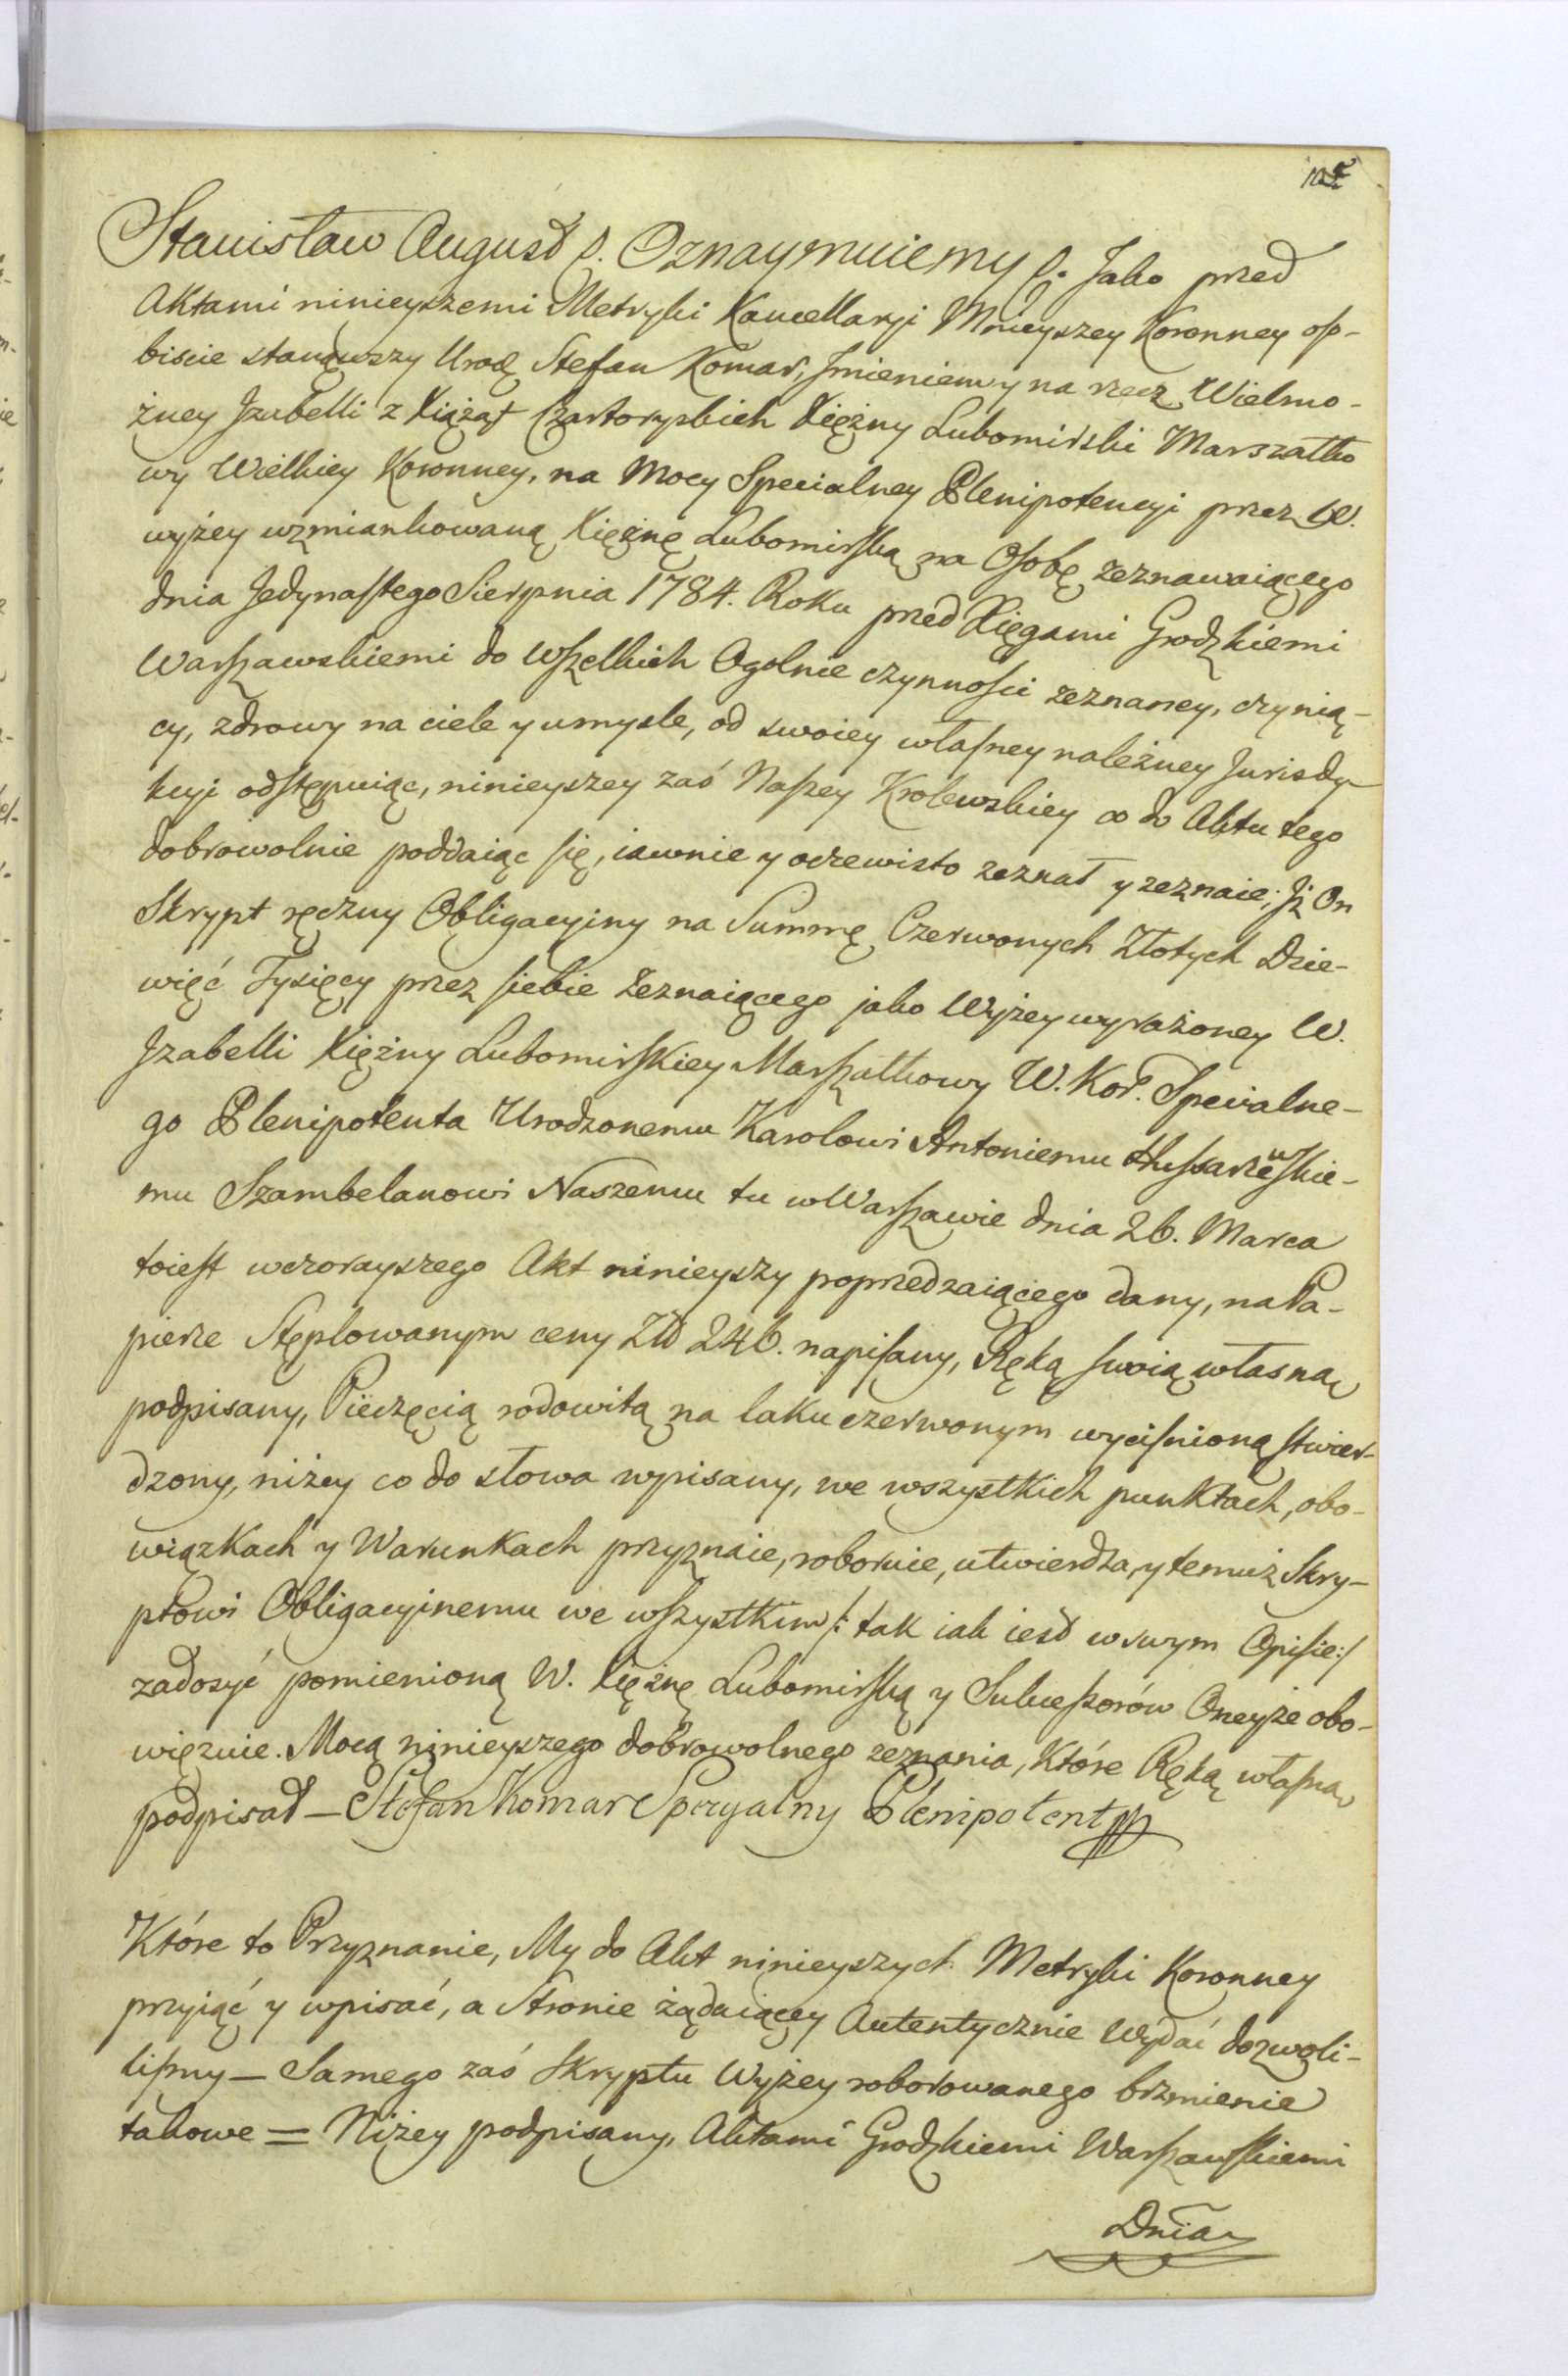 Stanisław August p. Oznaymuiemy p. Jako przed
Aktami ninieyszemi Metryki Kancellaryi Mnieyszey Koronney oso-
biscie stanąwszy Urodz Stefan Komar, Jmieniem y na rzecz Wielmo-
żney Jzabelli z Xiążąt Czartoryskich Xiężny Lubomirski Marszałko
wy Wielkiey Koronney, na Mocy Specialney Plenipotencyi przez W.
wyżey wzmiankowaną Xiężnę Lubomirską na Osobę zeznawaiącego
dnia Jedynastego Sierpnia 1784. Roku przed Xięgami Grodzkiemi
Warszawskiemi do wszelkich Ogolnie czynności zeznaney, czynią-
cy, zdrowy na ciele y umysle, od swoiey własney należney Jurisdy-
kcyi odstępuiąc, ninieyszey zaś Naszey Krolewskiey co do Aktu tego
dobrowolnie poddaiąc się, iawnie y oczewisto zeznał y zeznaie; Jż On
Skrypt ręczny Obligacyiny na Summę Czerwonych Złotych Dzie-
więć Tysięcy przez siebie Zeznaiącego jako Wyżey wyrażoney W.
Jzabelli Xiężny Lubomirskiey Marszałkowy W. Kor. Specialne-
go Plenipotenta Urodzonemu Karolowi Antoniemu Hussarzewskie-
mu Szambelanowi Naszemu tu w Warszawie dnia 26. Marca
toiest wczorayszego Akt ninieyszy poprzedzaiącego dany, na Pa-
pierze Stęplowanym ceny Zło 246. napisany, Ręką swoią własną
podpisany, Pieczęcią rodowitą na laku czerwonym wycisnioną stwier-
dzony, niżey co do słowa wpisany, we wszystkich punktach, obo-
wiązkach y Warunkach przyznaie, roboruie, utwierdza, y temuż Skry-
ptowi Obligacyinemu we wszystkim /: tak iak iest w swym Opisie :/
zadosyć pomienioną W. Xiężnę Lubomirską y Sukcessorów Oneyże obo-
więzuie. Mocą ninieyszego dobrowolnego zeznania, Które Ręką własną
podpisał — Stefan Komar Specyalny Plenipotent
Które to Przyznanie, My do Akt ninieyszych Metryki Koronney
przyiąć y wpisać, a Stronie żądaiącey Autentycznie Wydać dozwoli-
lismy — Samego zaś Skryptu Wyżey roborowanego brzmienie
takowe = Niżey podpisany, Aktami Grodzkiemi Warszawskiemi
Dnia